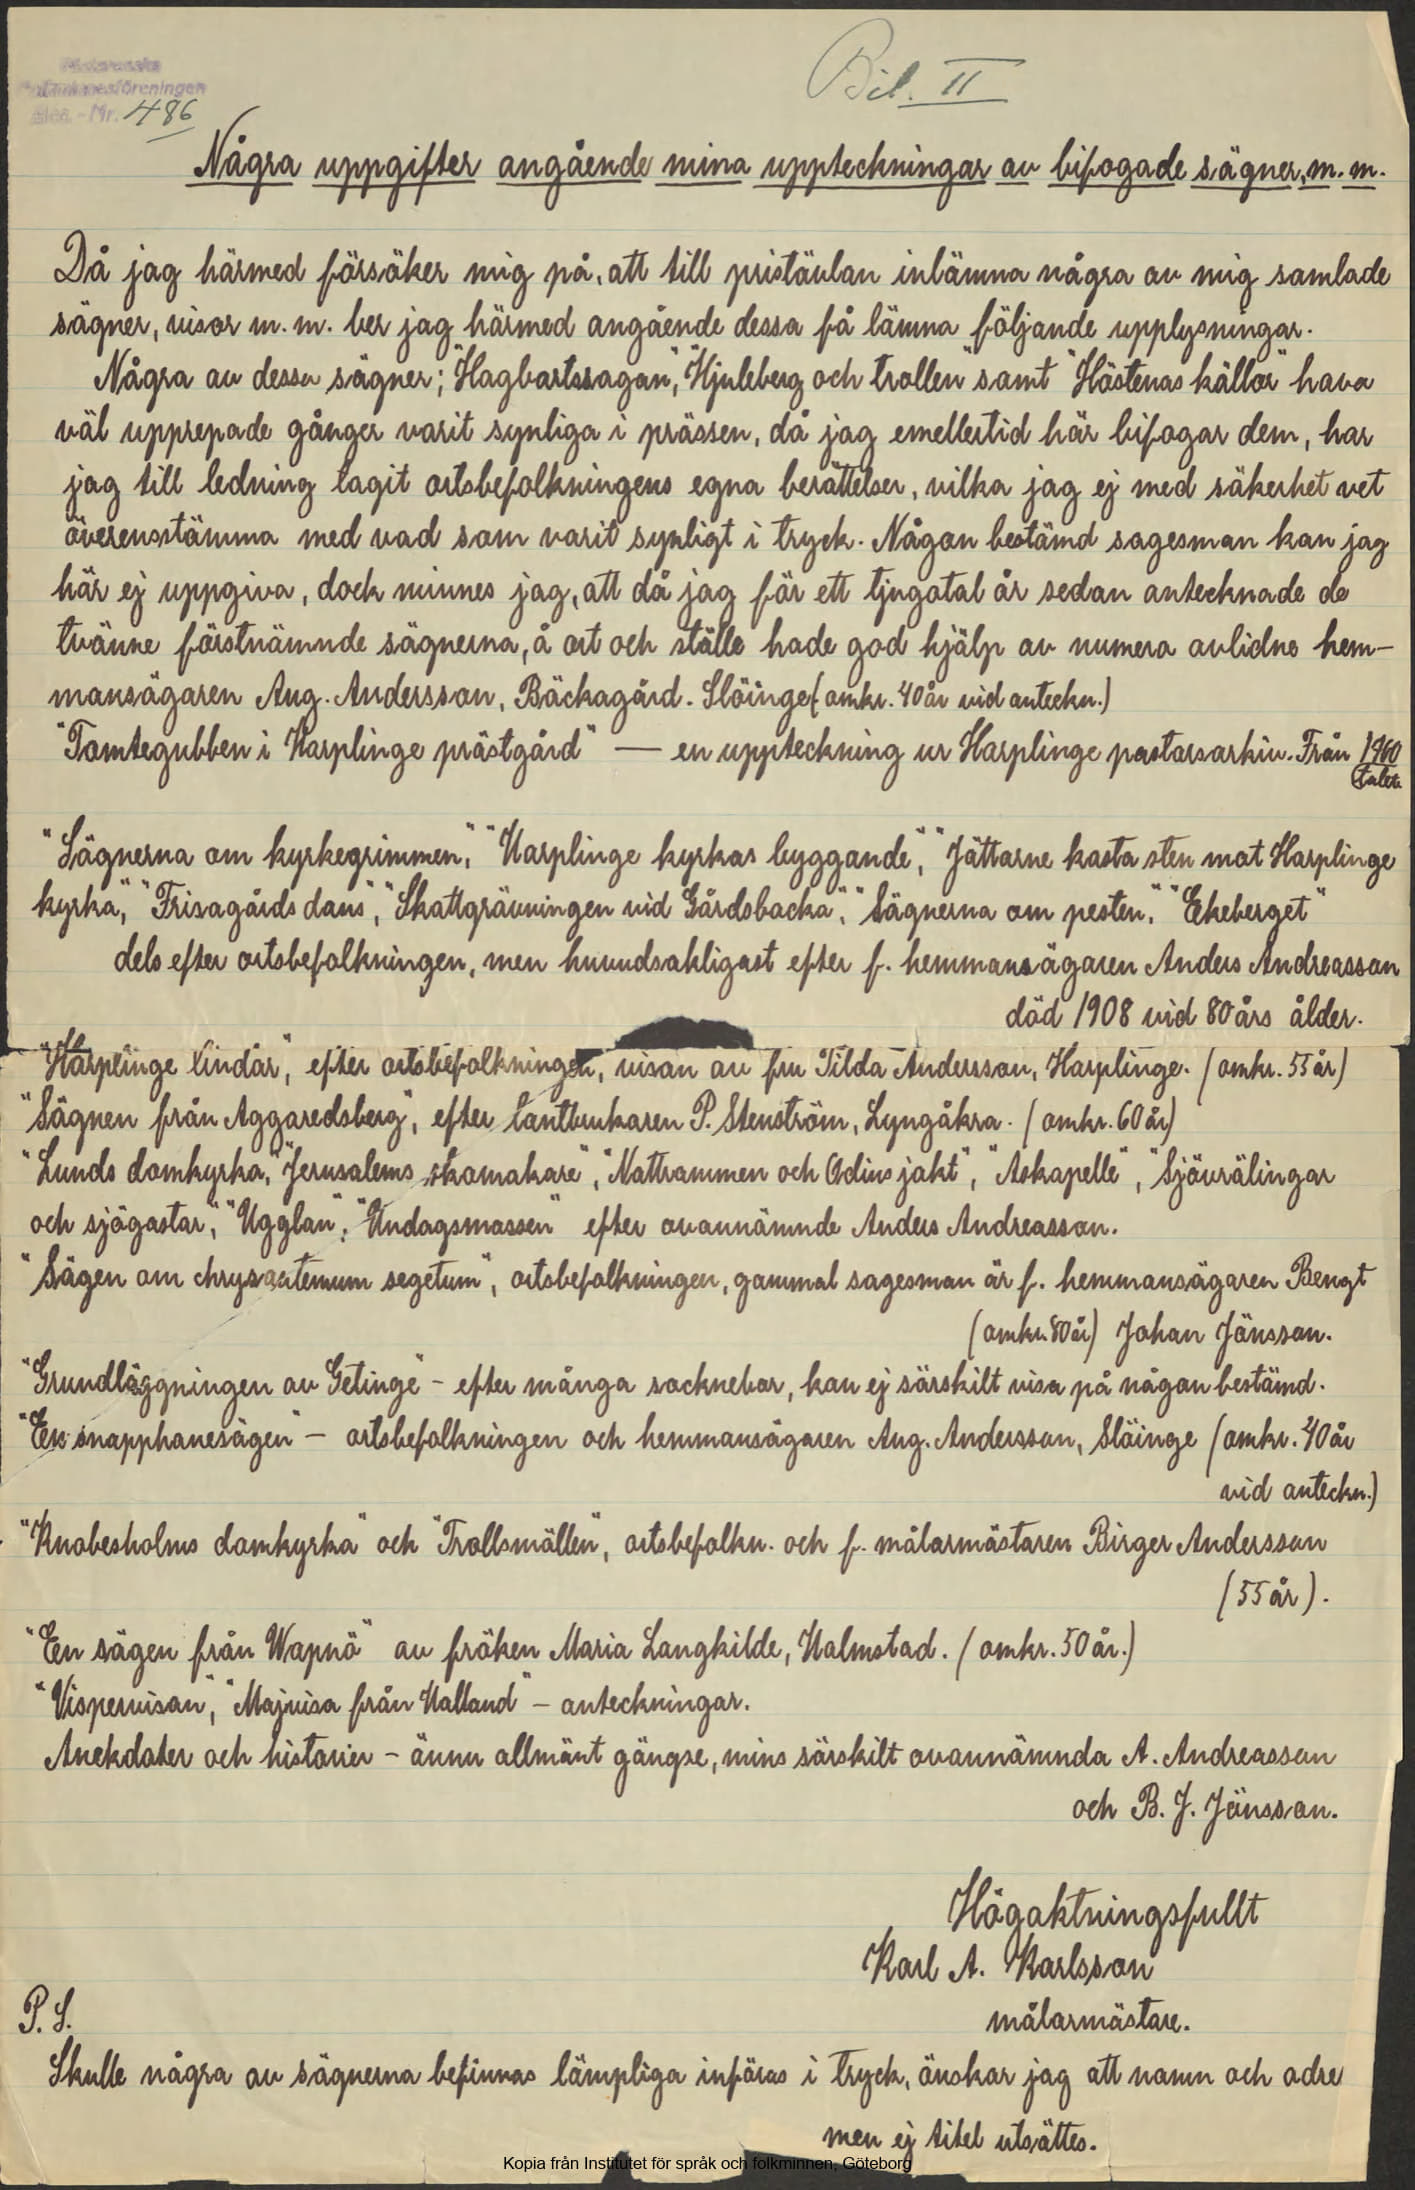 Bil. II
Folkminnesföreningen
Acc. - Nr. 486
Några uppgifter angående mina uppteckningar av bifogade sägner, m. m.
Då jag härmed försöker mig på, att till pristävlan inlämna några av mig samlade
sägner, visor m. m. ber jag härmed angående dessa få lämna följande upplysningar.
Några av dessa sägner; "Hagbartssagan", "Hjuleberg och trollen" samt "Hästenas källor" hava
väl upprepade gånger varit synliga i prässen, då jag emellertid här bifogar dem, har
jag till ledning tagit ortsbefolkningens egna berättelser, vilka jag ej med säkerhet vet
överensstämma med vad som varit synligt i tryck. Någon bestämd sagesman kan jag
här ej uppgiva, dock minnes jag, att då jag för ett tjugotal år sedan antecknade de
tvänne förstnämnde sägnerna, å ort och ställe hade god hjälp av numera avlidne hem-
mansägaren Aug. Andersson, Bäckagård. Slöinge (omkr. 40 år vid anteckn.)
"Tomtegubben i Harplinge prästgård" — en uppteckning ur Harplinge pastorsarkiv. Från
talet.
"Sägnerna om kyrkegrimmen", "Harplinge kyrkas byggande", "Jättarne kasta sten mot Harplinge
kyrka", "Frisagårds dans", "Skattgrävningen vid Gårdsbacka", "Sägnerna om pesten", "Ekeberget"
dels efter ortsbefolkningen, men huvudsakligast efter f. hemmansägaren Anders Andreasson
död 1908 vid 80 års ålder.
"Harplinge lindar", efter ortsbefolkningen, visan av fru Tilda Andersson, Harplinge. (omkr. 55 år)
"Sägnen från Aggaredsberg", efter lantbrukaren P. Stenström, Lyngåkra. (omkr. 60 år)
"Lunds domkyrka", "Jerusalems skomakare", "Nattrammen och Odins jakt", "Askapelle", "Sjövrälingar
och sjögastar", "Ugglan", "Undagsmassen" efter ovannämnde Anders Andreasson.
"Sägen om chrysantemum segetum", ortsbefolkningen, gammal sagesman är f. hemmansägaren Bengt
(omkr. 80 år) Johan Jönsson.
"Grundläggningen av Getinge" - efter många socknebor, kan ej särskilt visa på någon bestämd.
"En snapphanesägen" - ortsbefolkningen och hemmansägaren Aug. Andersson, Slöinge (omkr. 40 år
vid anteckn.)
"Knobesholms domkyrka" och "Trollsmällen", ortsbefolkn. och f. målarmästaren Birger Andersson
(55 år).
"En sägen från Wapnö" av fröken Maria Langkilde, Halmstad. (omkr. 50 år.)
"Vispervisan", "Majvisa från Halland" - anteckningar.
Anekdoter och historier - ännu allmänt gängse, mins särskilt ovannämnda A. Andreasson
och B. J. Jönsson.
Högaktningsfullt
Karl A. Karlsson
målarmästare.
P. S.
Skulle några av sägnerna befinnas lämpliga införas i tryck, önskar jag att namn och adre
men ej titel utsättes.
Kopia från Institutet för språk och folkminnen, Göteborg